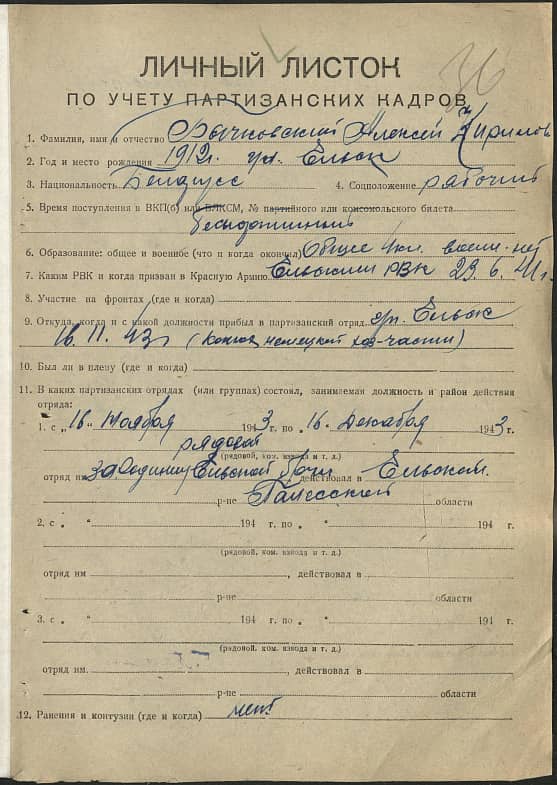 36
ЛИЧНЫЙ ЛИСТОК
ПО УЧЕТУ ПАРТИЗАНСКИХ КАДРОВ
1. Фамилия, имя и отчество Алексей Кирилов
2. Год и место рождения 1912 г. гп. Ельск
3. Национальность Белорусс 4. Соцположение рабочий
5. Время поступления в ВКП(б) или ВЛКСМ, № партийного или комсомольского билета
беспартийный
6. Образование: общее и военное (что и когда окончил) Общее 4 кл. воен. нет
7. Каким РВК и когда призван в Красную Армию Ельским РВК 23.6.41 г.
8. Участие на фронтах (где и когда)
9. Откуда, когда и с какой должности прибыл в партизанский отряд гп. Ельск
16.11.43 г. (немецкой хоз-части)
10. Был ли в плену (где и когда)
11. В каких партизанских отрядах (или группах) состоял, занимаемая должность и район действия
отряда:
1. с „16" Ноября 1943 г. по „16" Декабря 1943 г.
рядовой
(рядовой, ком. взвода и т. д.)
отряд им За Родину Ельской бриг действовал в Ельском
р-не Полесской области
2. с „ " 194 г. по „ " 194 г.
(рядовой, ком. взвода и т. д.)
отряд им , действовал в
р-не области
3. с „ " 194 г. по „ " 194 г.
(рядовой, ком. взвода и т. д.)
отряд им. , действовал в
р-не области
12. Ранения и контузии (где и когда) нет